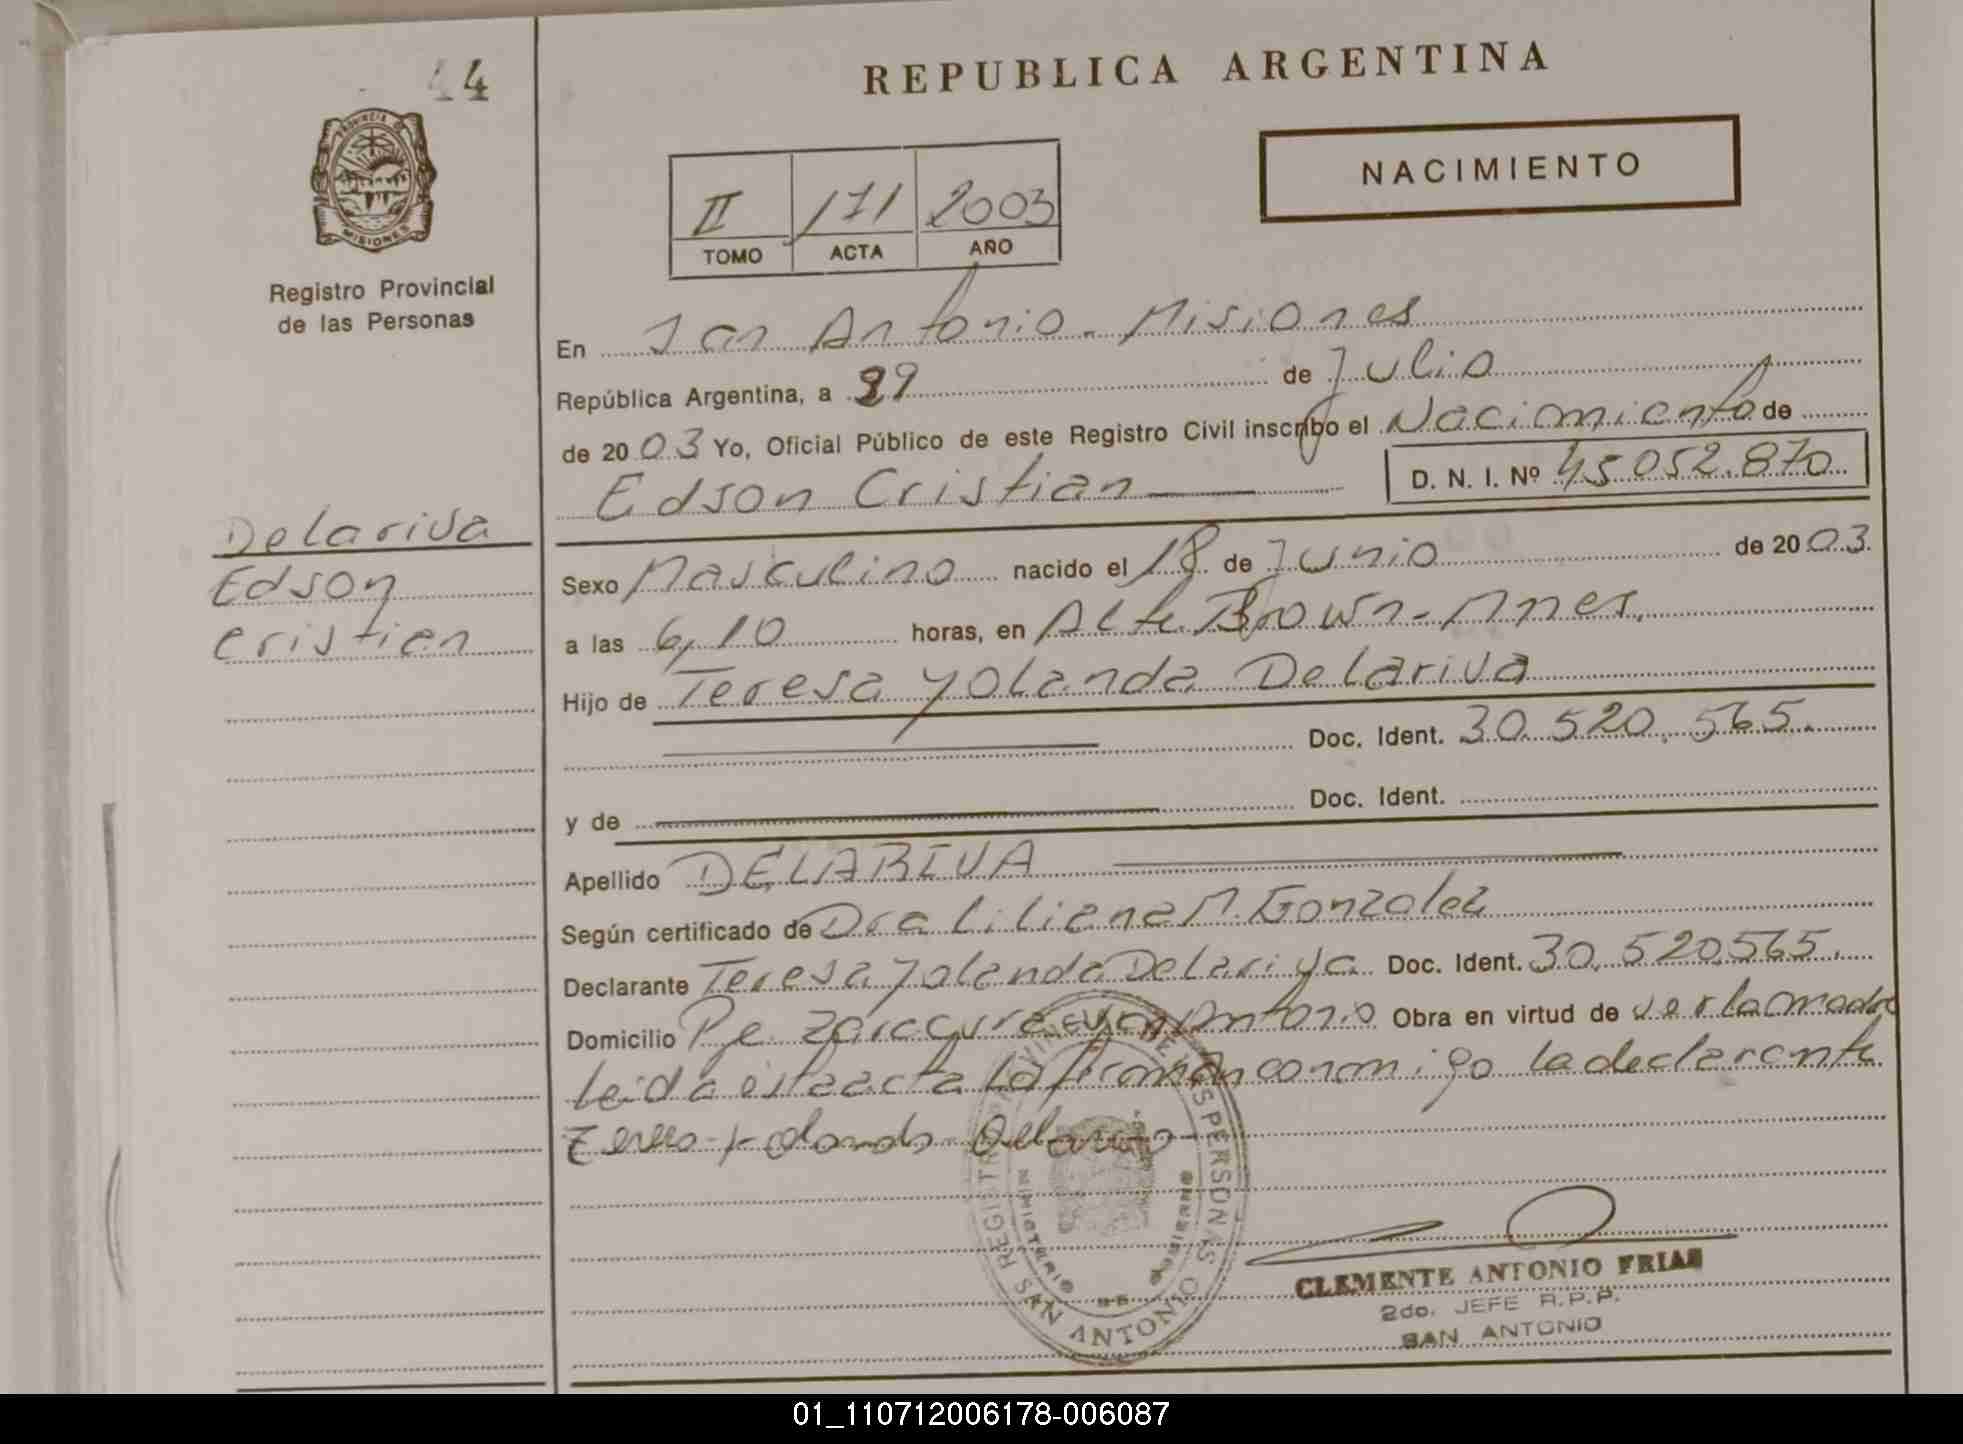 44
REPUBLICA ARGENTINA
NACIMIENTO
II 171 2003
TOMO ACTA AÑO
PROVINCIA DE MISIONES
Registro Provincial
de las Personas
En San Antonio - Misiones
República Argentina, a 29 de Julio
de 2003 Yo, Oficial Público de este Registro Civil inscribo el Nacimiento de
Edson Cristian D. N. I. Nº 45.052.870
Delariva
Edson
Cristian
Sexo Masculino nacido el 18 de Junio de 2003.
a las 6,10 horas, en Alte. Brown - Mnes.
Hijo de Teresa Yolanda Delariva
Doc. Ident. 30.520.565.
y de Doc. Ident.
Apellido DELARIVA
Según certificado de Dra Liliana M. Gonzalez
Declarante Teresa Yolanda Delariva Doc. Ident. 30.520.565.
Domicilio Pje. San Antonio Obra en virtud de ser la madre
leida esta acta la firman conmigo la declarante
Teresa Yolanda Delariva
REGISTRO PROVINCIAL DE LAS PERSONAS
MINISTERIO DE GOBIERNO
SAN ANTONIO
CLEMENTE ANTONIO FRIAS
2do. JEFE R.P.P.
SAN ANTONIO
01_110712006178-006087